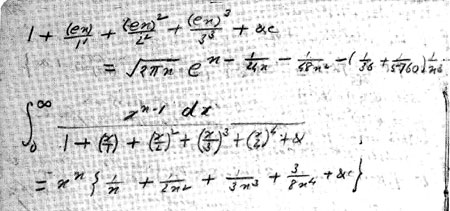 1 + (en)/1¹ + (en)²/2² + (en)³/3³ + &c
= √2πn e^{n - 1/24n - 1/48n² - (1/36 + 1/5760) 1/n³}
∫₀^∞ x^{n-1} dx / 1 + (x/1) + (x/2)² + (x/3)³ + (x/4)⁴ + &
= n^n { 1/n + 1/2n² + 1/3n³ + 3/8n⁴ + &c }